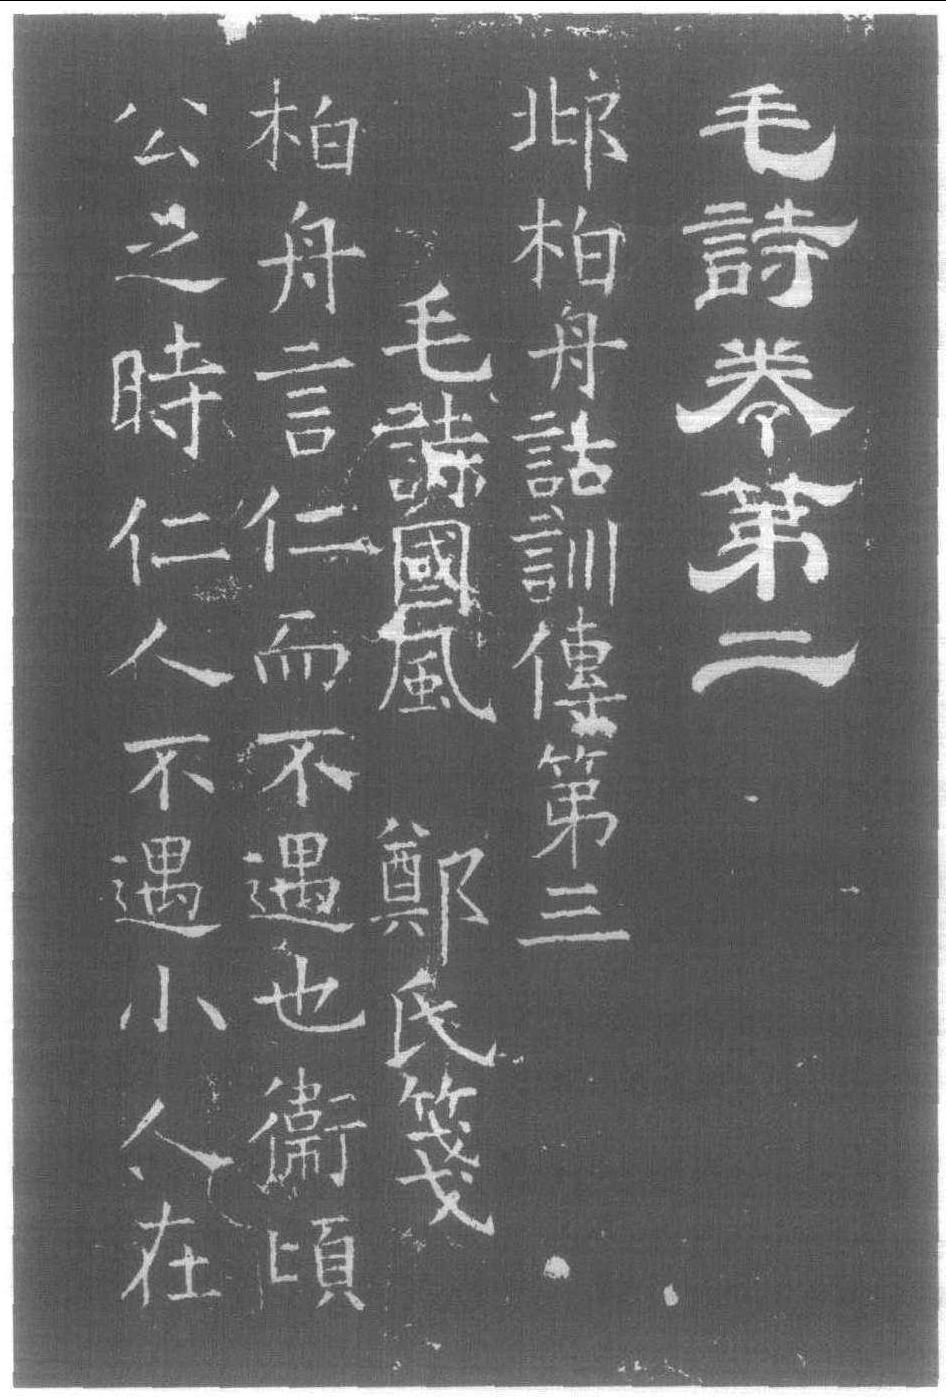 毛詩卷第二
邶柏舟詁訓傳第三
毛詩國風 鄭氏箋
柏舟言仁而不遇也衞頃
公之時仁人不遇小人在